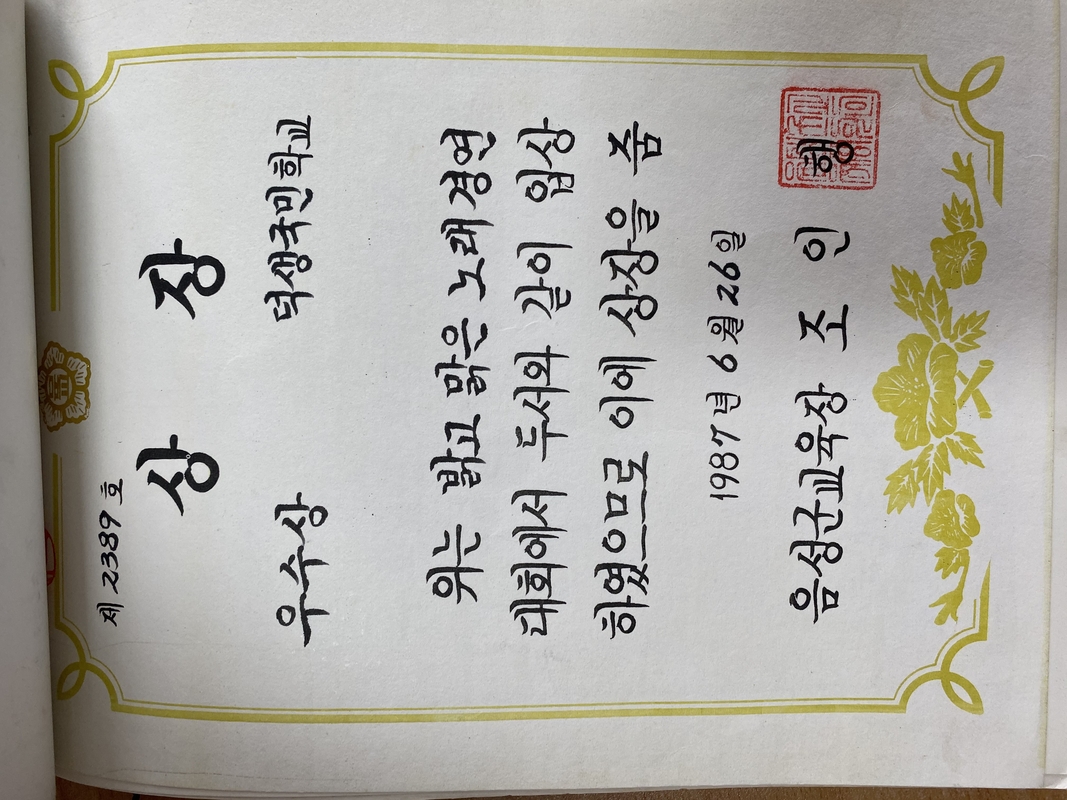 제 2389 호
상 장
우수상 덕생국민학교
위는 밝고 맑은 노래 경연
대회에서 두서와 같이 입상
하였으므로 이에 상장을 줌
1987년 6월 26일
음성군교육장 조 인 행